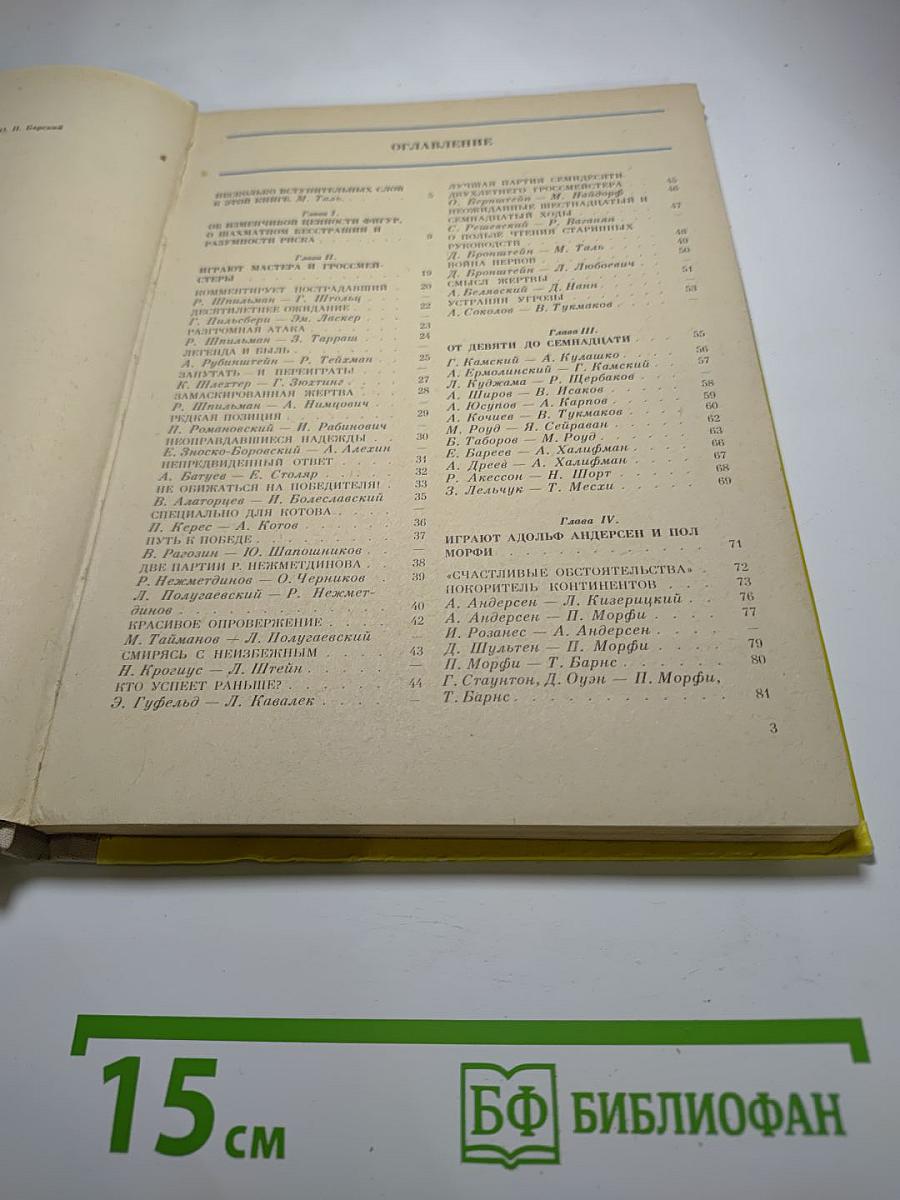 Ю. П. Барский
ОГЛАВЛЕНИЕ
НЕСКОЛЬКО ВСТУПИТЕЛЬНЫХ СЛОВ
К ЭТОЙ КНИГЕ. М. Таль. . . . 5
Глава I.
ОБ ИЗМЕНЧИВОЙ ЦЕННОСТИ ФИГУР,
О ШАХМАТНОМ БЕССТРАШИИ И
РАЗУМНОСТИ РИСКА . . . . 9
Глава II.
ИГРАЮТ МАСТЕРА И ГРОССМЕЙ-
СТЕРЫ . . . . 19
КОММЕНТИРУЕТ ПОСТРАДАВШИЙ . 20
Р. Шпильман — Г. Штольц . . —
ДЕСЯТИЛЕТНЕЕ ОЖИДАНИЕ . . . 22
Г. Пильсбери — Эм. Ласкер . . . —
РАЗГРОМНАЯ АТАКА . . . . 23
Р. Шпильман — З. Тарраш . . . 24
ЛЕГЕНДА И БЫЛЬ . . . . —
А. Рубинштейн — Р. Тейхман . . 25
ЗАПУТАТЬ — И ПЕРЕИГРАТЬ! . . . —
К. Шлехтер — Г. Зюхтинг . . . . 27
ЗАМАСКИРОВАННАЯ ЖЕРТВА . . . 28
Р. Шпильман — А. Нимцович . . —
РЕДКАЯ ПОЗИЦИЯ . . . . 29
П. Романовский — И. Рабинович —
НЕОПРАВДАВШИЕСЯ НАДЕЖДЫ . . 30
Е. Зноско-Боровский — А. Алехин —
НЕПРЕДВИДЕННЫЙ ОТВЕТ . . . . 31
А. Батуев — Е. Столяр . . . . 32
НЕ ОБИЖАТЬСЯ НА ПОБЕДИТЕЛЯ! . 33
В. Алаторцев — И. Болеславский 35
СПЕЦИАЛЬНО ДЛЯ КОТОВА . . . . —
П. Керес — А. Котов . . . . 36
ПУТЬ К ПОБЕДЕ . . . . 37
В. Рагозин — Ю. Шапошников . . —
ДВЕ ПАРТИИ Р. НЕЖМЕТДИНОВА . . 38
Р. Нежметдинов — О. Черников . 39
Л. Полугаевский — Р. Нежмет-
динов . . . . 40
КРАСИВОЕ ОПРОВЕРЖЕНИЕ . . . . 42
М. Тайманов — Л. Полугаевский —
СМИРЯСЬ С НЕИЗБЕЖНЫМ . . . . 43
Н. Крогиус — Л. Штейн . . . . —
КТО УСПЕЕТ РАНЬШЕ? . . . . 44
Э. Гуфельд — Л. Кавалек . . . . —
ЛУЧШАЯ ПАРТИЯ СЕМИДЕСЯТИ-
ДВУХЛЕТНЕГО ГРОССМЕЙСТЕРА . . 45
О. Бернштейн — М. Найдорф . . 46
НЕОЖИДАННЫЕ ШЕСТНАДЦАТЫЙ И
СЕМНАДЦАТЫЙ ХОДЫ . . . . 47
С. Решевский — Р. Ваганян . . —
О ПОЛЬЗЕ ЧТЕНИЯ СТАРИННЫХ
РУКОВОДСТВ . . . . 48
Д. Бронштейн — М. Таль . . . 49
ВОЙНА НЕРВОВ . . . . 50
Д. Бронштейн — Л. Любоевич . . —
СМЫСЛ ЖЕРТВЫ . . . . 51
А. Белявский — Д. Нанн . . . —
УСТРАНЯЯ УГРОЗЫ . . . . 53
А. Соколов — В. Тукмаков . . . —
Глава III.
ОТ ДЕВЯТИ ДО СЕМНАДЦАТИ . . . 55
Г. Камский — А. Кулашко . . . . 56
А. Ермолинский — Г. Камский . . 57
Л. Куджама — Р. Щербаков . . . —
А. Широв — В. Исаков . . . . 58
А. Юсупов — А. Карпов . . . . 59
А. Кочиев — В. Тукмаков . . . . 60
М. Роуд — Я. Сейраван . . . . 62
Б. Таборов — М. Роуд . . . . 63
Е. Бареев — А. Халифман . . . . 66
А. Дреев — А. Халифман . . . . 67
Р. Акессон — Н. Шорт . . . . 68
З. Лельчук — Т. Месхи . . . . 69
Глава IV.
ИГРАЮТ АДОЛЬФ АНДЕРСЕН И ПОЛ
МОРФИ . . . . 71
«СЧАСТЛИВЫЕ ОБСТОЯТЕЛЬСТВА» . 72
ПОКОРИТЕЛЬ КОНТИНЕНТОВ . . . 73
А. Андерсен — Л. Кизерицкий . . 76
А. Андерсен — П. Морфи . . . . 77
И. Розанес — А. Андерсен . . . . —
Д. Шультен — П. Морфи . . . . 79
П. Морфи — Т. Барнс . . . . 80
Г. Стаунтон, Д. Оуэн — П. Морфи,
Т. Барнс . . . . 81
3
15 см
БФ БИБЛИОФАН